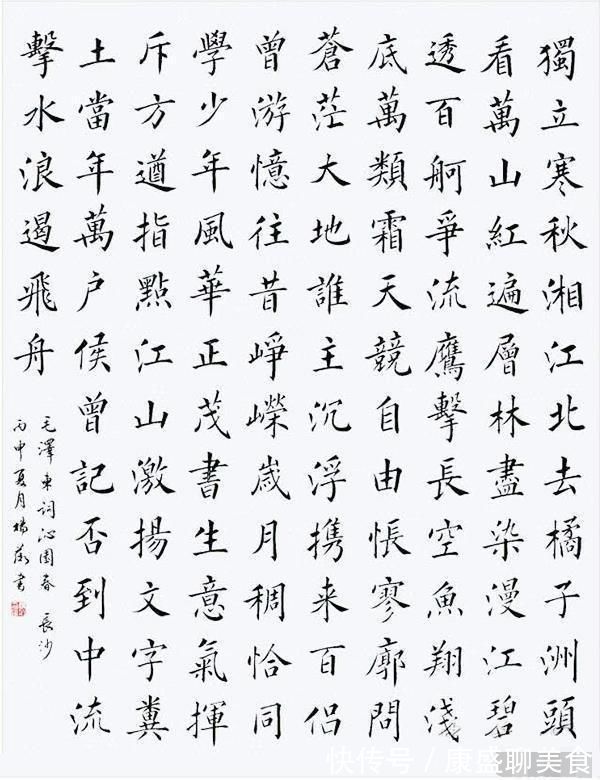 獨立寒秋湘江北去橘子洲頭
看萬山紅遍層林盡染漫江碧
透百舸爭流鷹擊長空魚翔淺
底萬類霜天競自由悵寥廓問
蒼茫大地誰主沉浮携来百侶
曾游憶往昔崢嶸嵗月稠恰同
學少年風華正茂書生意氣揮
斥方遒指點江山激揚文字糞
土當年萬户侯曾記否到中流
擊水浪遏飛舟
毛澤東詞沁園春 長沙
丙申夏月楊書
快传号／康盛聊美食